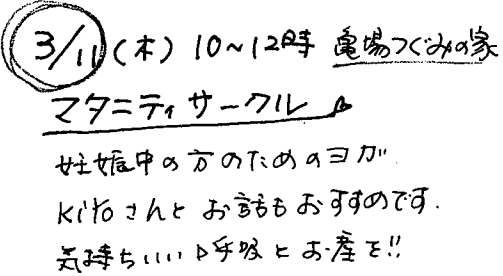 3/11(木) 10~12時 亀場つぐみの家
マタニティサークル
妊娠中の方のためのヨガ
kiroさんとお話もおすすめです.
気持ちいい呼吸とお産を!!